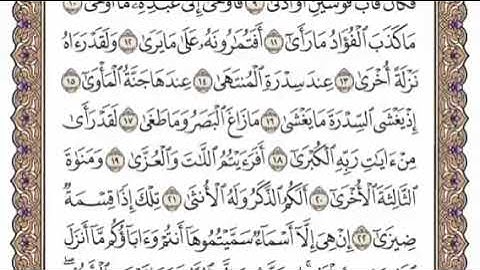 فَكَانَ قَابَ قَوْسَيْنِ أَوْ أَدْنَىٰ ٩ فَأَوْحَىٰٓ إِلَىٰ عَبْدِهِۦ مَآ أَوْحَىٰ ١٠
مَا كَذَبَ ٱلْفُؤَادُ مَا رَأَىٰٓ ١١ أَفَتُمَٰرُونَهُۥ عَلَىٰ مَا يَرَىٰ ١٢ وَلَقَدْ رَءَاهُ
نَزْلَةً أُخْرَىٰ ١٣ عِندَ سِدْرَةِ ٱلْمُنتَهَىٰ ١٤ عِندَهَا جَنَّةُ ٱلْمَأْوَىٰٓ ١٥
إِذْ يَغْشَى ٱلسِّدْرَةَ مَا يَغْشَىٰ ١٦ مَا زَاغَ ٱلْبَصَرُ وَمَا طَغَىٰ ١٧ لَقَدْ رَأَىٰ
مِنْ ءَايَٰتِ رَبِّهِ ٱلْكُبْرَىٰٓ ١٨ أَفَرَءَيْتُمُ ٱللَّٰتَ وَٱلْعُزَّىٰ ١٩ وَمَنَوٰةَ
ٱلثَّالِثَةَ ٱلْأُخْرَىٰٓ ٢٠ أَلَكُمُ ٱلذَّكَرُ وَلَهُ ٱلْأُنثَىٰ ٢١ تِلْكَ إِذًا قِسْمَةٌ
ضِيزَىٰٓ ٢٢ إِنْ هِىَ إِلَّآ أَسْمَآءٌ سَمَّيْتُمُوهَآ أَنتُمْ وَءَابَآؤُكُم مَّآ أَنزَلَ